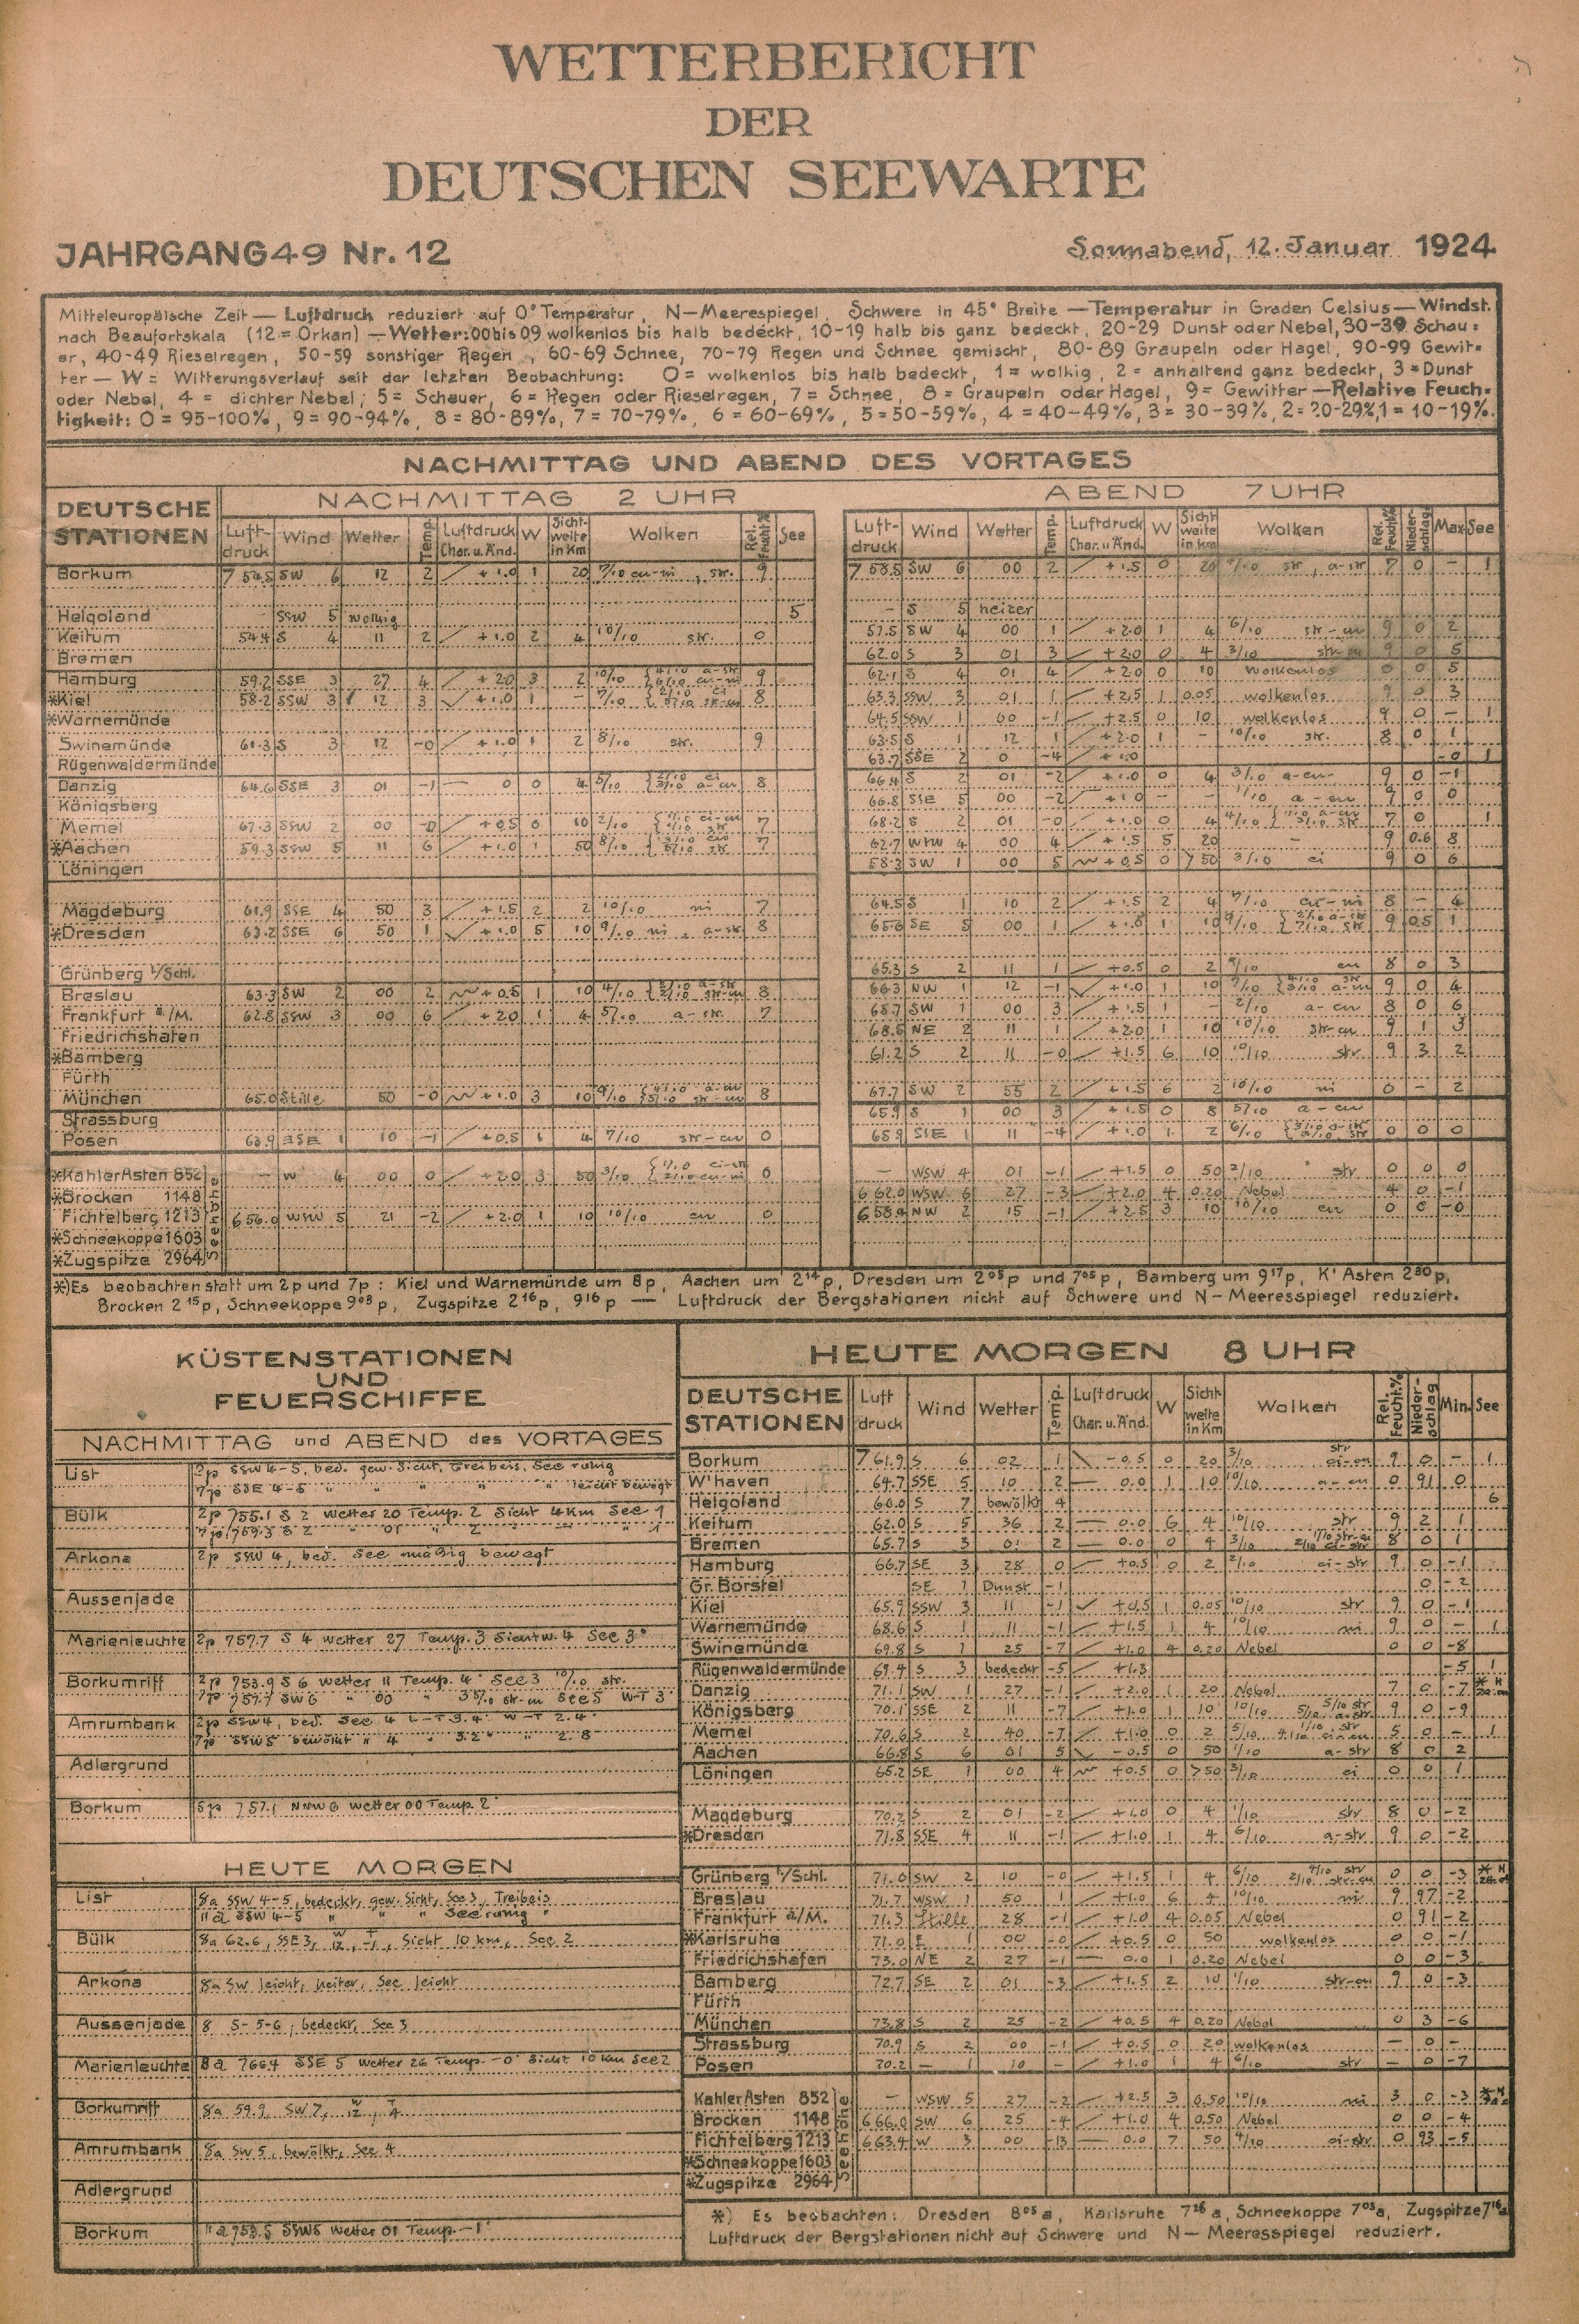 WETTERBERICHT
DER
DEUTSCHEN SEEWARTE
JAHRGANG 49 Nr. 12
Sonnabend, 12. Januar 1924
Mitteleuropäische Zeit — Luftdruck reduziert auf 0° Temperatur, N-Meerespiegel, Schwere in 45° Breite — Temperatur in Graden Celsius — Windst.
nach Beaufortskala (12 = Orkan) — Wetter: 00 bis 09 wolkenlos bis halb bedeckt, 10-19 halb bis ganz bedeckt, 20-29 Dunst oder Nebel, 30-39 Schau=
er, 40-49 Rieselregen, 50-59 sonstiger Regen, 60-69 Schnee, 70-79 Regen und Schnee gemischt, 80-89 Graupeln oder Hagel, 90-99 Gewit=
ter — W = Witterungsverlauf seit der letzten Beobachtung: 0 = wolkenlos bis halb bedeckt, 1 = wolkig, 2 = anhaltend ganz bedeckt, 3 = Dunst
oder Nebel, 4 = dichter Nebel, 5 = Schauer, 6 = Regen oder Rieselregen, 7 = Schnee, 8 = Graupeln oder Hagel, 9 = Gewitter — Relative Feuch=
tigkeit: 0 = 95-100%, 9 = 90-94%, 8 = 80-89%, 7 = 70-79%, 6 = 60-69%, 5 = 50-59%, 4 = 40-49%, 3 = 30-39%, 2 = 20-29%, 1 = 10-19%.
NACHMITTAG UND ABEND DES VORTAGES
DEUTSCHE STATIONEN
NACHMITTAG 2 UHR
ABEND 7 UHR
Luft-druck Wind Wetter Temp. Luftdruck Char. u. Änd. W Sicht-weite in Km Wolken Rel. Feucht.% See
Luft-druck Wind Wetter Temp. Luftdruck Char. u. Änd. W Sicht-weite in Km Wolken Rel. Feucht.% Nieder-schlag Max See
Borkum SW 6 12 2 +1.0 1 20 9 7 58.5 SW 6 00 2 +1.5 0 20 str, a-str 7 0 – 1
Helgoland – SSW 5 wolkig 5 – S 5 heiter
Keitum 54.4 S 4 11 2 +1.0 2 4 10/10 str. 0 57.5 SW 4 00 1 +2.0 1 4 6/10 str-cu 9 0 2
Bremen 62.0 S 3 01 3 +2.0 0 4 3/10 9 0 5
Hamburg 59.2 SSE 3 27 4 +2.0 3 2 10/10 9 62.1 S 4 01 4 +2.0 0 10 wolkenlos 0 0 5
*Kiel 58.2 SSW 3 12 3 +1.0 1 – 7/10 8 63.3 SSW 3 01 1 +2.5 1 0.05 wolkenlos 9 0 3
*Warnemünde 64.5 SSW 1 00 -1 +2.5 0 10 wolkenlos 9 0 – 1
Swinemünde 61.3 S 3 12 -0 +1.0 1 2 8/10 str. 9 63.5 S 1 12 1 +2.0 1 – 10/10 str. 8 0 1
Rügenwaldermünde 63.7 SSE 2 0 -4 +1.0 -0 1
Danzig 64.6 SSE 3 01 -1 — 0 0 4 5/10 8 66.4 S 2 01 -2 +1.0 0 4 3/10 a-cu 9 0 -1
Königsberg 66.8 SSE 5 00 -2 +1.0 – – 1/10 a-cu 9 0 0
Memel 67.3 SSW 2 00 -0 +0.5 0 10 2/10 7 68.2 S 2 01 -0 +1.0 0 4 4/10 7 0 1
*Aachen 59.3 SSW 5 11 6 +1.0 1 50 8/10 7 62.7 4 00 4 +1.5 5 20 – 9 0.6 8
Löningen 58.3 SW 1 00 5 +0.5 0 >50 3/10 ci 9 0 6
Magdeburg 61.9 SSE 4 50 3 +1.5 2 2 10/10 ni 7 64.5 S 1 10 2 +1.5 2 4 7/10 cu-ni 8 – 4
*Dresden 63.2 SSE 6 50 1 +1.0 5 10 9/10 ni, a-str 8 65.6 SE 5 00 1 1 10 9/10 9 0.5 1
Grünberg i/Schl. 65.3 S 2 11 1 +0.5 0 2 cu 8 0 3
Breslau 63.3 SW 2 00 2 +0.5 1 10 4/10 8 66.3 NW 1 12 -1 +1.0 1 10 7/10 9 0 4
Frankfurt a./M. 62.8 SSW 3 00 6 +2.0 1 4 5/10 a-str. 7 68.7 SW 1 00 3 +1.5 1 – 2/10 a-cu 8 0 6
Friedrichshafen 68.5 NE 2 11 1 +2.0 1 10 10/10 str-cu 9 1 3
*Bamberg 61.2 S 2 11 -0 +1.5 6 10 10/10 str 9 3 2
Fürth
München 65.0 Stille 50 -0 +1.0 3 10 9/10 8 67.7 SW 2 55 2 +1.5 6 2 10/10 ni 0 – 2
Strassburg 65.9 S 1 00 3 +1.5 0 8 5/10 a-cu
Posen 63.9 ESE 1 10 -1 +0.5 1 4 7/10 str-cu 0 65.9 SSE 1 11 -4 +1.0 1 2 6/10 0 0 0
Seehöhe
*Kahler Asten 852 – W 4 00 0 +2.0 3 50 3/10 0 – WSW 4 01 -1 +1.5 0 50 2/10 str 0 0 0
*Brocken 1148 6 62.0 WSW 6 27 -3 +2.0 4 0.20 Nebel 4 0 -1
Fichtelberg 1213 6 56.0 WSW 5 21 -2 +2.0 1 10 10/10 cu 0 6 58.4 NW 2 15 -1 +2.5 3 10 10/10 cu 0 0 -0
*Schneekoppe 1603
*Zugspitze 2964
*) Es beobachten statt um 2p und 7p: Kiel und Warnemünde um 8p, Aachen um 2¹⁴p, Dresden um 2⁰⁵p und 7⁰⁵p, Bamberg um 9¹⁷p, K' Asten 2³⁰p,
Brocken 2¹⁵p, Schneekoppe 9⁰³p, Zugspitze 2¹⁶p, 9¹⁶p — Luftdruck der Bergstationen nicht auf Schwere und N-Meeresspiegel reduziert.
KÜSTENSTATIONEN
UND
FEUERSCHIFFE
NACHMITTAG und ABEND des VORTAGES
List 2p SSW 4-5, bed. gew. Sicht, Treibeis, See ruhig
7p SSE 4-5 " " " " leicht bewegt
Bülk 2p 755.1 S 2 Wetter 20 Temp. 2 Sicht 4 Km See 1
7p 759.3 S 2 " 01 " 2 " — " 1
Arkona 2p SSW 4, bed. See mäßig bewegt
Aussenjade
Marienleuchte 2p 757.7 S 4 Wetter 27 Temp. 3 Sichtw. 4 See 3
Borkumriff 2p 753.9 S 6 Wetter 11 Temp. 4° See 3 10/10 str.
7p 757.7 SW 6 " 00 " See 5 W-T 3
Amrumbank 2p SSW 4, bed. See 4 L-T 3.4° W-T 2.4°
7p SSW 5 bewölkt " 4 3.2° " 2.8
Adlergrund
Borkum 5p 757.1 NNW 6 Wetter 00 Temp. 2°
HEUTE MORGEN
List 8a SSW 4-5, bedeckt, gew. Sicht, See 3, Treibeis
11a SSW 4-5 " " " See ruhig "
Bülk 8a 62.6, SSE 3, W 12, T -1, Sicht 10 km, See 2
Arkona 8a SW leicht, heiter, See leicht
Aussenjade 8 S-5-6, bedeckt, See 3
Marienleuchte 8a 766.4 SSE 5 Wetter 26 Temp. -0° Sicht 10 Km See 2
Borkumriff 8a 59.9, SW 7, W 12, T 4
Amrumbank 8a SW 5, bewölkt, See 4
Adlergrund
Borkum SSW 5 Wetter 01 Temp. -1°
HEUTE MORGEN 8 UHR
DEUTSCHE STATIONEN Luft druck Wind Wetter Temp. Luftdruck Char. u. Änd. W Sicht-weite in Km Wolken Rel. Feucht.% Nieder-schlag Min. See
Borkum 7 61.9 S 6 02 1 -0.5 0 20 3/10 str ci-cu 9 0 – 1
W'haven 64.7 SSE 5 10 2 — 0.0 1 10 10/10 a-cu 0 91 0
Helgoland 60.0 S 7 bewölkt 4 6
Keitum 62.0 S 5 36 2 — 0.0 6 4 10/10 str 9 2 1
Bremen 65.7 S 3 01 2 — 0.0 0 4 3/10 8 0 1
Hamburg 66.7 SE 3 28 0 +0.5 0 2 2/10 ci-str 9 0 -1
Gr. Borstel SE 1 Dunst -1 0 -2
Kiel 65.9 SSW 3 11 -1 +0.5 1 0.05 10/10 str 9 0 -1
Warnemünde 68.6 S 1 11 -1 +1.5 1 4 10/10 ni 9 0 – 1
Swinemünde 69.8 S 1 25 -7 +1.0 4 0.20 Nebel 0 0 -8
Rügenwaldermünde 69.4 S 3 bedeckt -5 +1.3 -5 1
Danzig 71.1 SW 1 27 -1 +2.0 1 20 Nebel 7 0 -7
Königsberg 70.1 SSE 2 11 -7 +1.0 1 10 10/10 5/10 str 5/10 a-str 9 0 -9
Memel 70.6 S 2 40 -7 +1.0 0 2 5/10 5 0 – 1
Aachen 66.8 S 6 01 5 -0.5 0 50 1/10 a-str 8 0 2
Löningen 65.2 SE 1 00 4 +0.5 0 >50 3/10 ci 0 0 1
Magdeburg 70.2 S 2 01 -2 +1.0 0 4 1/10 str 8 0 -2
*Dresden 71.8 SSE 4 11 -1 +1.0 1 4 6/10 a-str 9 0 -2
Grünberg i/Schl. 71.0 SW 2 10 -0 +1.5 1 4 6/10 4/10 str 2/10 str-cu 0 0 -3
Breslau 71.7 WSW 1 50 1 +1.0 6 4 10/10 ni 9 97 -2
Frankfurt a/M. 71.3 Stille 28 -1 +1.0 4 0.05 Nebel 0 91 -2
*Karlsruhe 71.0 E 1 00 -0 +0.5 0 50 wolkenlos 0 0 -1
Friedrichshafen 73.0 NE 2 27 -1 0.0 1 0.20 Nebel 0 0 -3
Bamberg 72.7 SE 2 01 -3 +1.5 2 10 1/10 str-cu 9 0 -3
Fürth
München 73.8 S 2 25 -2 +0.5 4 0.20 Nebel 0 3 -6
Strassburg 70.9 S 2 00 -1 +0.5 0 20 wolkenlos – 0 –
Posen 70.2 — 1 10 – +1.0 1 4 6/10 str – 0 -7
Seehöhe
Kahler Asten 852 – WSW 5 27 -2 +2.5 3 0.50 10/10 ni 3 0 -3
Brocken 1148 6 66.0 SW 6 25 -4 +1.0 4 0.50 Nebel 0 0 -4
Fichtelberg 1213 6 63.4 W 3 00 -13 — 0.0 7 50 4/10 ci-str 0 93 -5
*Schneekoppe 1603
*Zugspitze 2964
*) Es beobachten: Dresden 8⁰⁵a, Karlsruhe 7²⁶a, Schneekoppe 7⁰³a, Zugspitze 7¹⁶a
Luftdruck der Bergstationen nicht auf Schwere und N-Meeresspiegel reduziert.